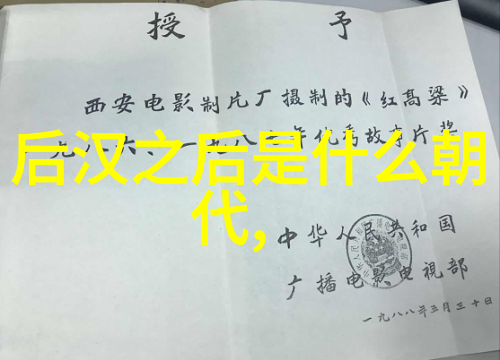 授予
西安电影制片厂摄制的《红高粱》
后汉之后是什么朝
代,
中华人民共和国
广播电影电视部
一九八八年三月三十日